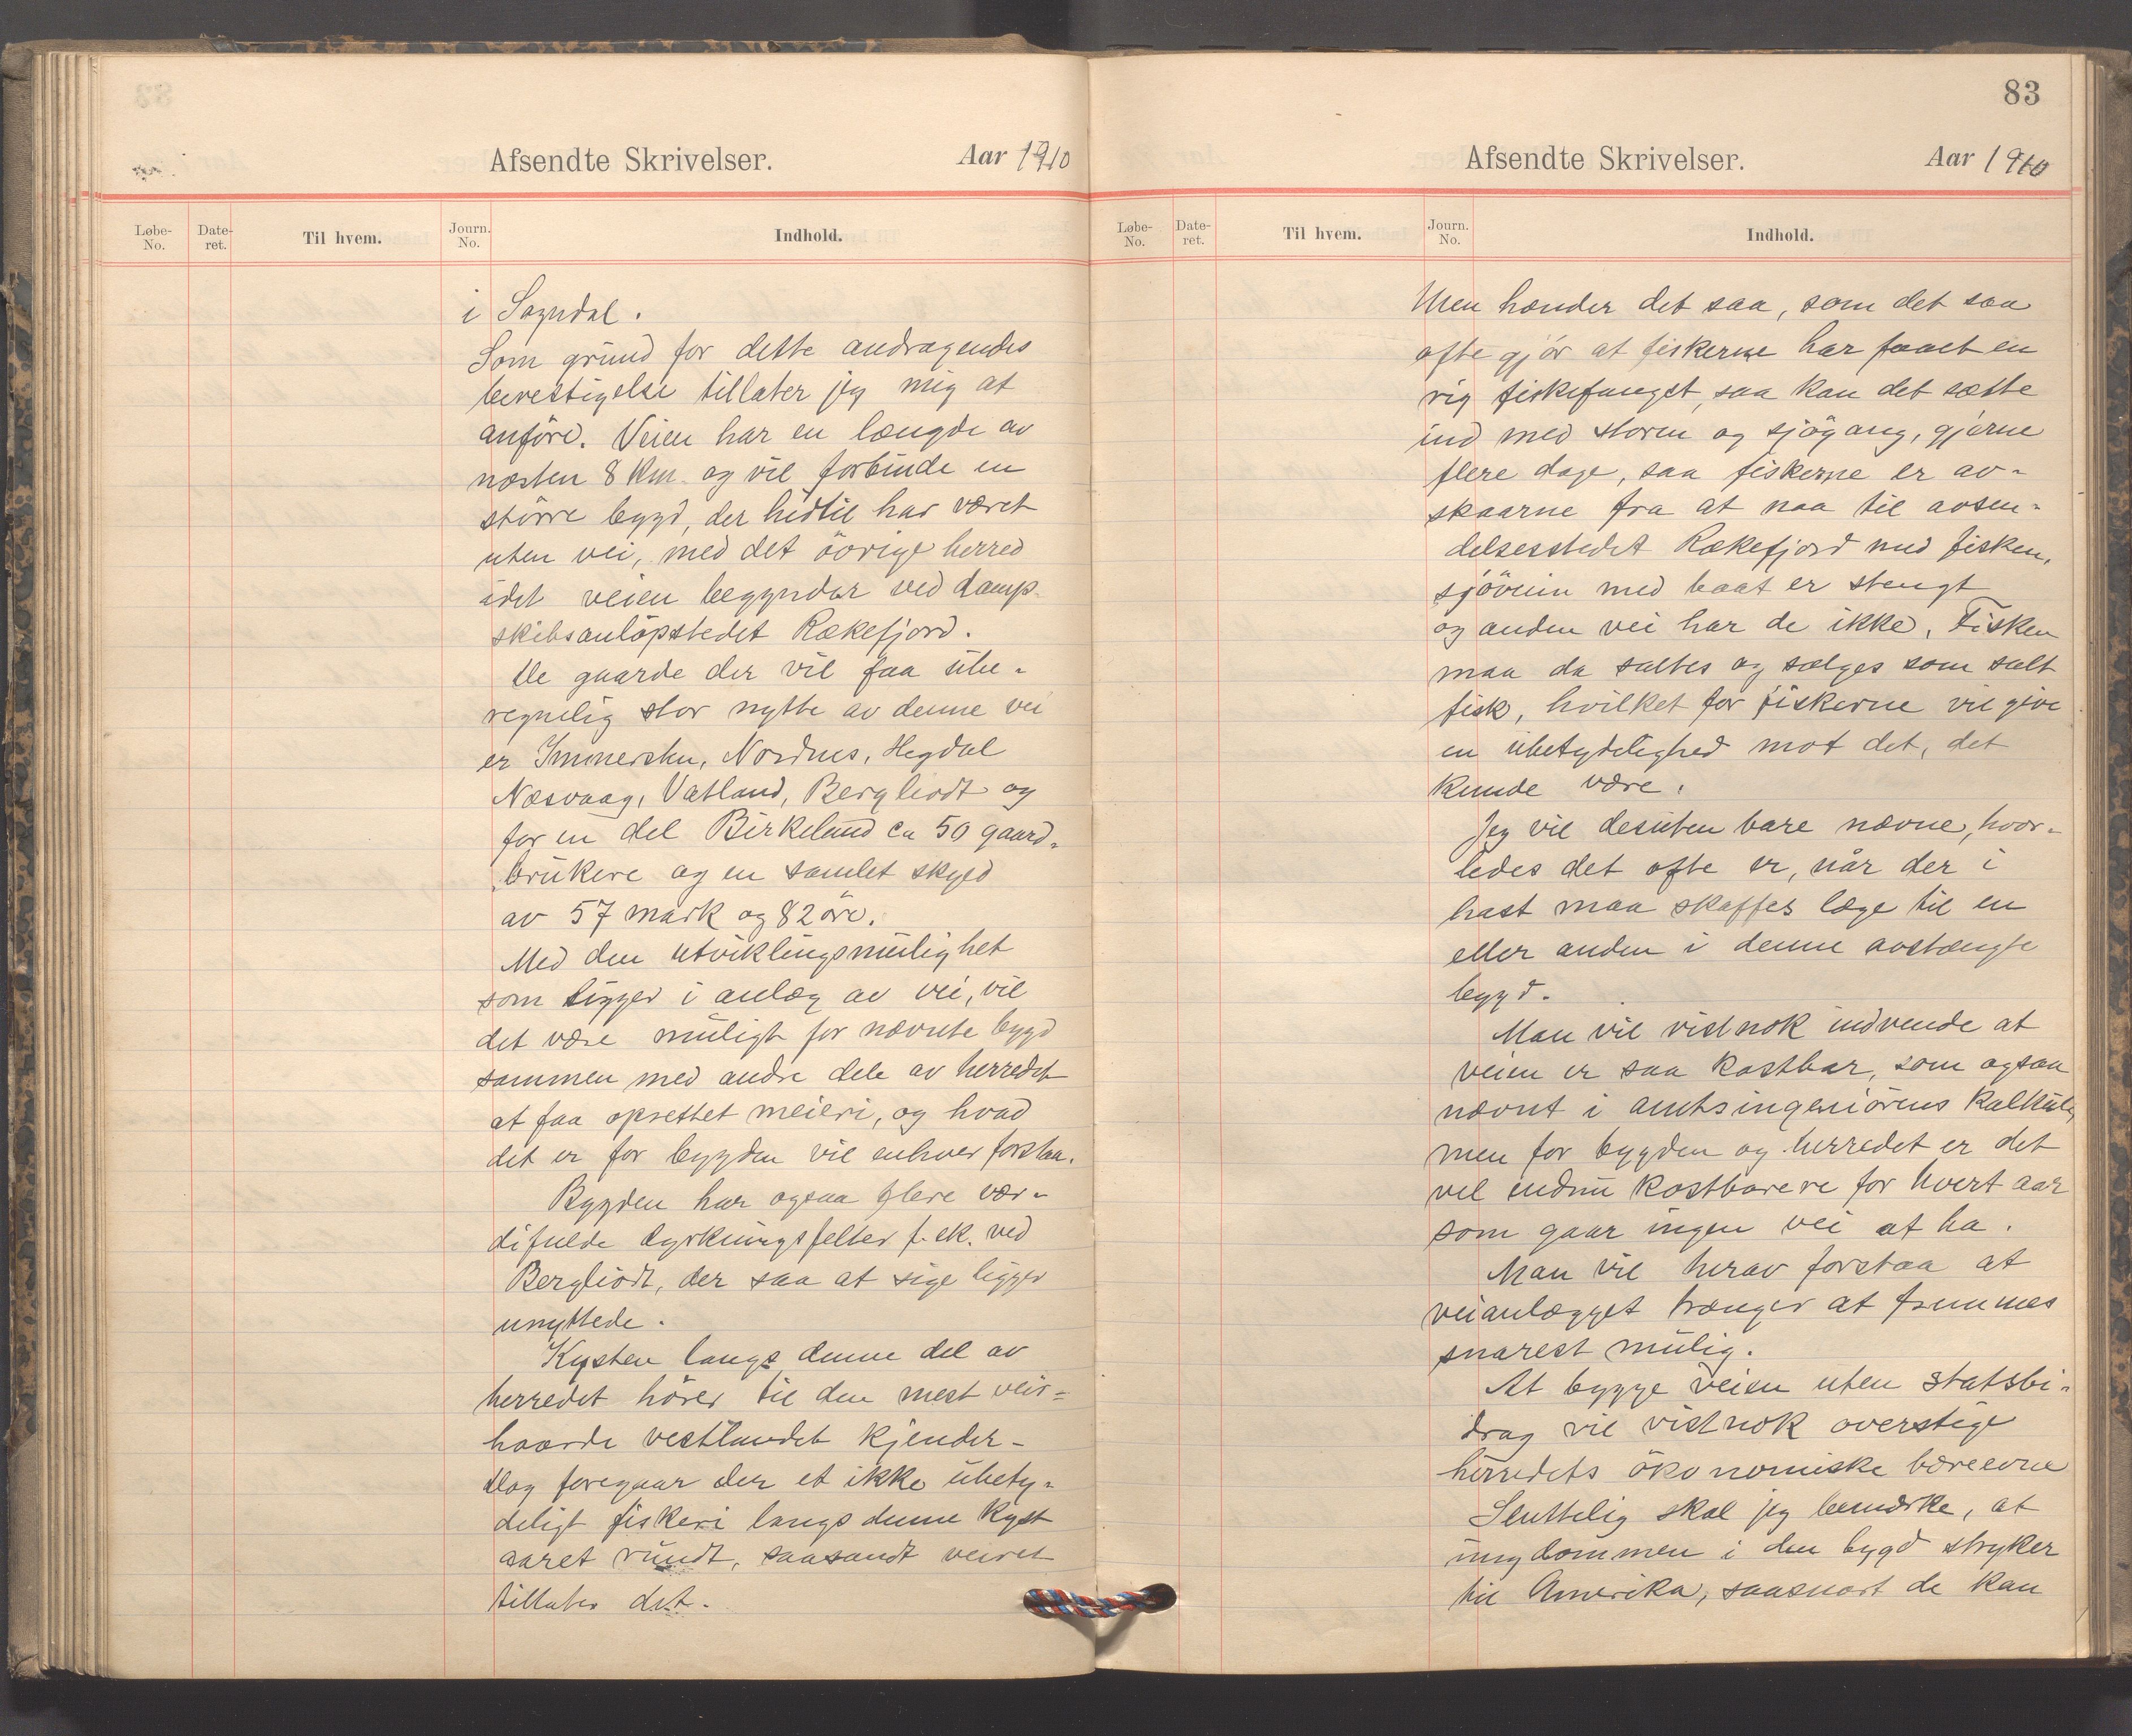 Afsendte Skrivelser. Aar 1910
Løbe-No. Date-ret. Til hvem. Journ. No. Indhold.
i Sogndal.
Som grund for dette andragendes
bevestigelse tillater jeg mig at
anföre. Veien har en længde av
næsten 8 km. og vil forbinde en
större bygd, der hidtil har været
uten vei, med det övrige herred
idet veien begynder ved damp-
skibsanlöpstedet Rækefjord.
De gaarde der vil faa ube-
regnelig stor nytte av denne vei
er Immersten, Nordnes, Hegdal
Næsvaag, Vatland, Bergliodt og
for en del Birkeland ca 50 gaard-
brukere og en samlet skyld
av 57 mark og 82 öre.
Med den utviklingsmulighet
som ligger i anlæg av vei, vil
det være muligt for nævnte bygd
sammen med andre dele av herredet
at faa oprettet meieri, og hvad
det er for bygden vil enhver forstaa.
Bygden har ogsaa flere vær-
difulde dyrkningsfelter f. ek. ved
Bergliodt, der saa at sige ligger
unyttede.
Kysten langs denne del av
herredet hörer til den mest veir-
haarde vestlandet kjender-
Dog foregaar der et ikke ubety-
deligt fiskeri langs denne kyst
aaret rundt, saasandt veiret
tillater det.
83
Afsendte Skrivelser. Aar 1910
Løbe-No. Date-ret. Til hvem. Journ. No. Indhold.
Men hænder det saa, som det saa
ofte gjör at fiskerne har faaet en
rig fiskefangst, saa kan det sætte
ind med storm og sjögang, gjerne
flere dage, saa fiskerne er av-
skaarne fra at naa til avsen-
delsesstedet Rækefjord med fisken,
sjöveien med baat er stengt
og anden vei har de ikke. Fisken
maa da saltes og sælges som salt
fisk, hvilket for fiskerne vil give
en ubetydelighed mot det, det
kunde være.
Jeg vil desuten bare nævne, hvor-
ledes det ofte er, når der i
hast maa skaffes læge til en
eller anden i denne avstængte
bygd.
Man vil vistnok indvende at
veien er saa kostbar, som ogsaa
nævnt i amtsingeniörens kalkule,
men for bygden og herredet er det
vel endnu kostbarere for hvert aar
som gaar ingen vei at ha.
Man vil herav forstaa at
veianlægget trænger at fremmes
snarest mulig.
At bygge veien uten statsbi-
drag vil vistnok overstige
herredets ökonomiske bæreevne
Sluttelig skal jeg bemerke, at
ungdommen i den bygd stryker
til Amerika, saasnart de kan